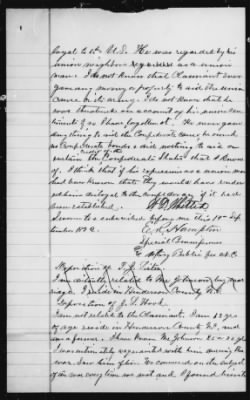 loyal to the U.S. He was regarded by his
union neighbors as a union
man. I do not know that Claimant ever
gave any money or property to aid the union
cause or its army. I do not know that he
was threatened on account of his union sen-
timents
He never gave
anything to aid the Confederate cause, he owned
no Confederate bonds & did nothing to aid or
sustain the credit of the Confederate States that I know
of. I think that if his expressions as a union man
had been known that they would have under
mined his loyalty to the if it had
been established.
Sworn to & subscribed before me this 19th Sep
tember 1872.
Hampton
Special Commissioner
& Notary Public for N.C.
Deposition of T. J.
I am related to McJohnson by mar
riage. I reside in Henderson County N.C.
Deposition of J. L. Hook
I am not related to the Claimant. I am 52 yrs
of age reside in Henderson County N.C. and
am a farmer. I have known McJohnson 25 or 30 yrs
I was intimately acquainted with him during the
war. I saw him often. We conversed on the subject
of the war every time we met and I found him